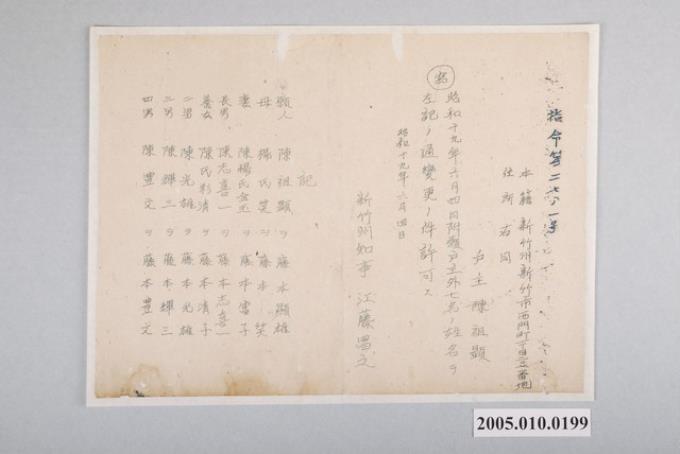 指令第二六八一号
本籍 新竹州新竹市西門町
住所 右同
戸主 陳祖顕
寫
昭和十九年六月四日附願戸主外七名ノ姓名ヲ
左記ノ通変更ノ件許可ス
昭和十九年六月四日
新竹州知事 江藤昌之
記
願人 陳祖顕ヲ 藤本顕雄
母 楊氏笑ヲ 藤本笑
妻 陳楊氏金玉ヲ 藤本富子
長男 陳志喜ヲ 藤本志喜一
養女 陳氏彩清ヲ 藤本清子
二男 陳光雄ヲ 藤本光雄
三男 陳輝三ヲ 藤本輝三
四男 陳豊文ヲ 藤本豊文
2005.010.0199